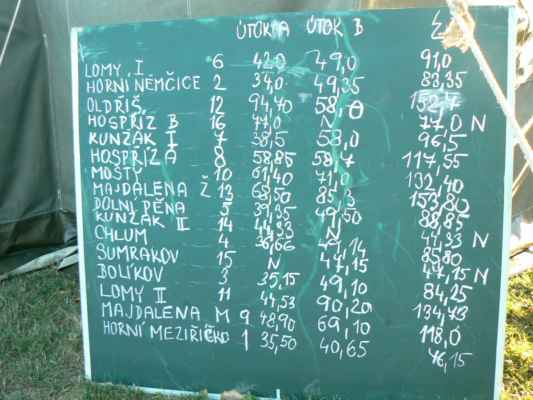 ÚTOK A ÚTOK B Σ
LOMY I 6 42,0 49,0 91,0
HORNÍ NĚMČICE 2 34,0 49,35 83,35
OLDŘIŠ 12 94,40 58,0 152,4
HOSPŘÍZ B 16 77,0 N 77,0 N
KUNŽAK I 7 38,5 58,0 96,5
HOSPŘÍZ A 8 58,85 58,7 117,55
MOSTY 10 61,40 71,0 132,40
MAJDALENA Ž 13 68,50 85,3 153,80
DOLNÍ PĚNA 5 39,35 49,50 88,85
KUNŽAK II 14 44,33 N 44,33 N
CHLUM 4 36,66 49,14 85,80
SUMRAKOV 15 N 47,15 47,15 N
BOLÍKOV 3 35,15 49,10 84,25
LOMY II 11 44,53 90,20 134,73
MAJDALENA M 9 48,90 69,10 118,0
HORNÍ MEZIŘÍČKO 1 35,50 40,65 76,15